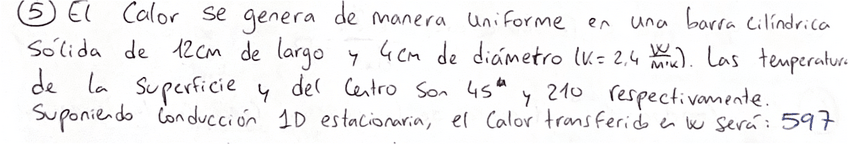 ⑤ El Calor se genera de manera uniforme en una barra cilíndrica
sólida de 12cm de largo y 4cm de diámetro (K=2,4 W/m·K). Las temperatur
de la superficie y del Centro son 45ª y 210 respectivamente.
Suponiendo Conducción 1D estacionaria, el Calor transferido en W será: 597